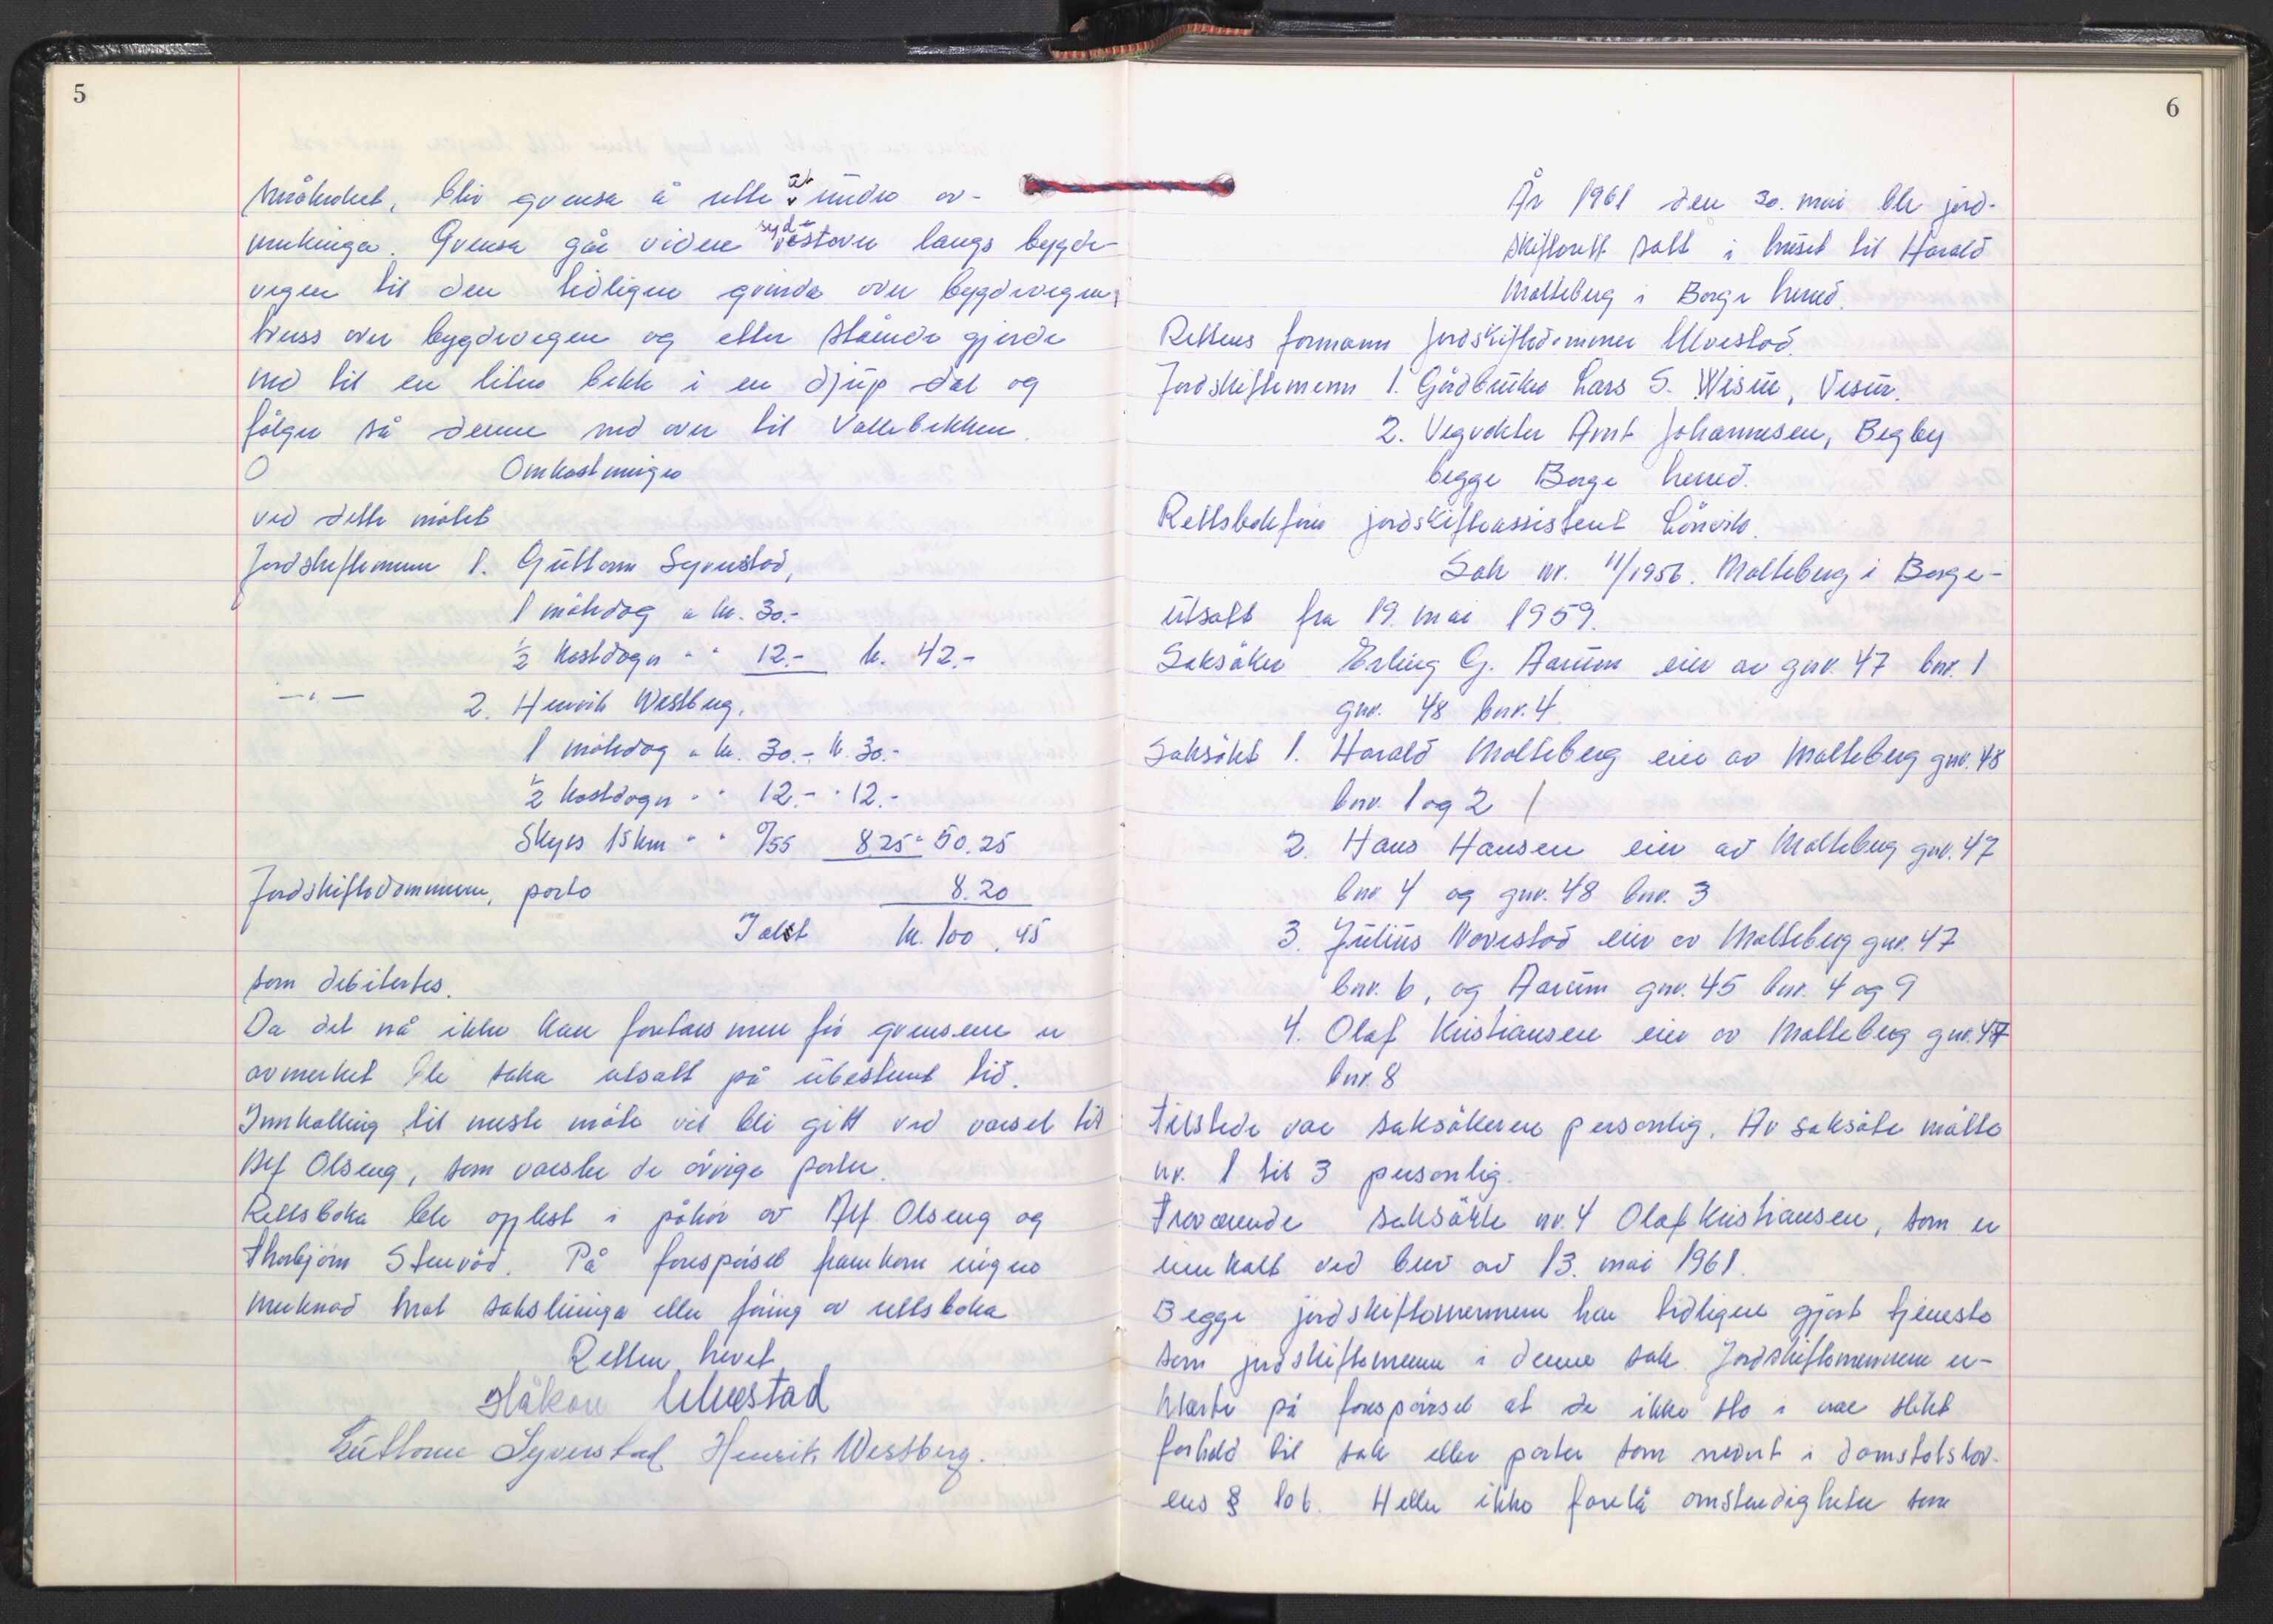 5
bli grensa å rette ut under av-
merkinga. Grensa går videre sydvestover langs bygde-
vegen til den tidligere grinda over bygdevegen,
tverss over bygdevegen og etter stående gjerde
ned til en liten bekk i en djup dal og
følger så denne ned over til Vallebekken.
Omkostninger
ved dette møtet
Jordskiftemenn 1. Guttorm Syverstad,
1 møtedag a kr. 30.-
½ kostdøgn " " 12.- kr. 42.-
—"— 2. Henrik Westberg.
1 møtedag a kr. 30.- kr. 30.-
½ kostdøgn " " 12.- " 12.-
Skyss 15 km " " 0/55 8.25 " 50.25
Jordskiftedommeren, porto 8.20
I alt kr. 100.45
som debitertes.
Da det nå ikke kan foretaes mer før grensene er
avmerket ble saka utsatt på ubestemt tid.
Innkalling til neste møte vil bli gitt ved varsel til
Alf Olseng, som varsler de øvrige parter.
Rettsboka ble opplest i påhør av Alf Olseng og
Thorbjørn Stenrød. På forespørsel framkom ingen
merknad mot saksstyringa eller føring av rettsboka
Retten hevet
Håkon Ulvestad
Guttorm Syverstad Henrik Westberg.
6
År 1961 den 30. mai ble jord-
skifterett satt i huset til Harald
Molteberg i Borge herred.
Rettens formann jordskiftedommer Ulvestad.
Jordskiftemenn 1. Gårdbruker Lars S. Wisur, Visur.
2. Vegvokter Arnt Johannesen, Begby
begge Borge herred.
Rettsbokfører jordskifteassistent Lönvik.
Sak nr. 11/1956. Molteberg i Borge-
utsatt fra 19. mai 1959.
Saksøker Erling G. Aarum eier av gnr. 47 bnr. 1
gnr. 48 bnr. 4
Saksøkt 1. Harald Molteberg eier av Molteberg gnr. 48
bnr. 1 og 2
2. Hans Hansen eier av Molteberg gnr. 47
bnr 4 og gnr. 48 bnr. 3
3. Julius Navestad eier av Molteberg gnr. 47
bnr. 6, og Aarum gnr. 45 bnr. 4 og 9
4. Olaf Kristiansen eier av Molteberg gnr. 47
bnr. 8
Tilstede var saksøkeren personlig. Av saksøkte møtte
nr. 1 til 3 personlig.
Fraværende saksøkte nr. 4 Olaf Kristiansen, som er
innkalt ved brev av 13. mai 1961.
Begge jordskiftemennene har tidligere gjort tjeneste
som jordskiftemenn i denne sak. Jordskiftemennene er-
klærte på forespørsel at de ikke sto i noe slikt
forhold til sak eller parter som nevnt i domstolslov-
ens § 106. Heller ikke forelå omstendigheter som